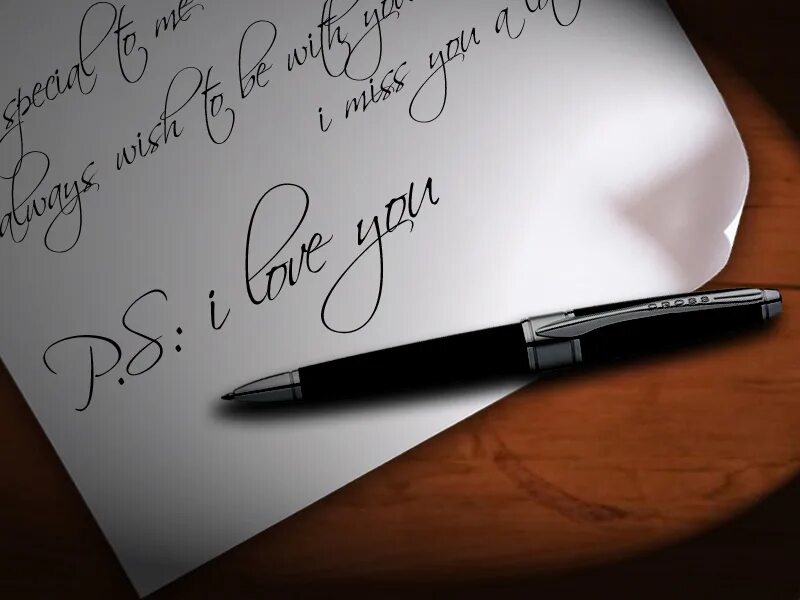 special to me
always wish to be with you
i miss you a lot
P.S: i love you
CROSS